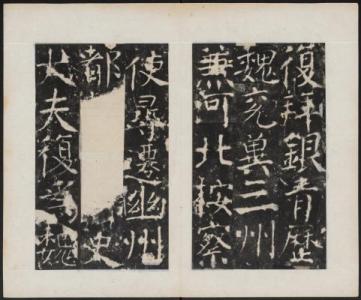 復拜銀青歷
魏兖冀三州
兼河北按察
使尋遷幽州
都史
大夫復為魏